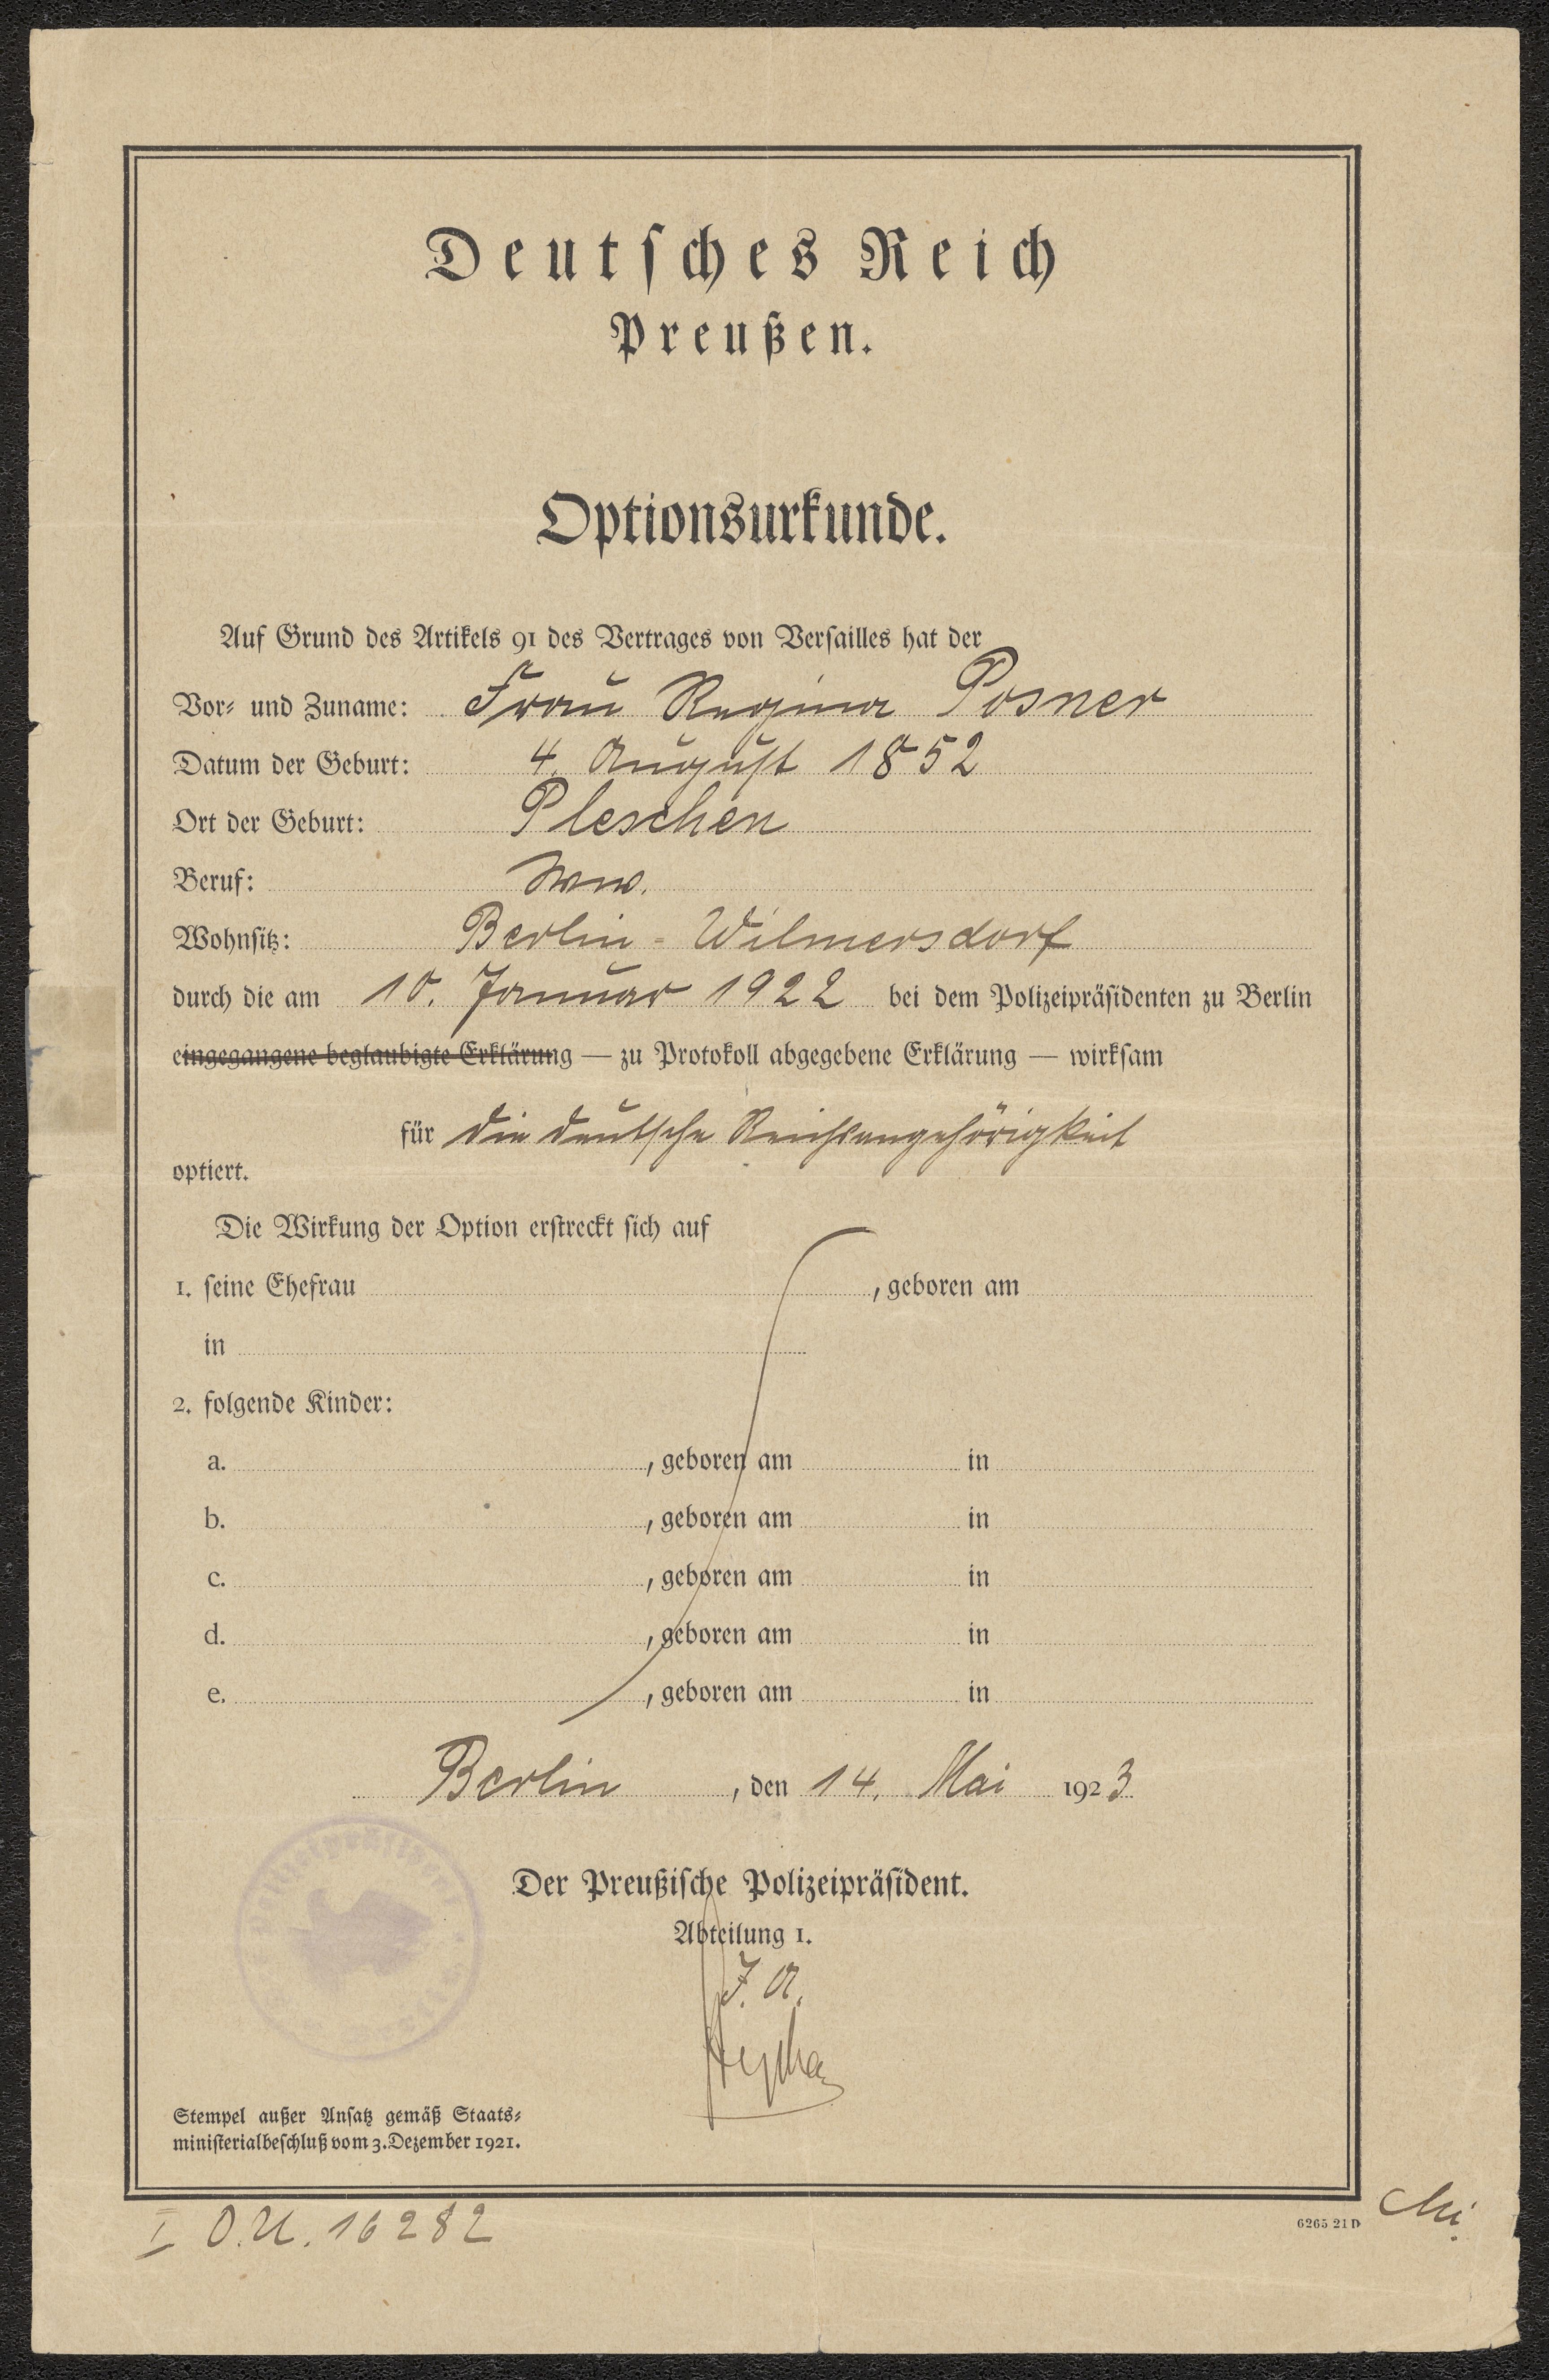 Deutsches Reich
Preußen.
Optionsurkunde.
Auf Grund des Artikels 91 des Vertrages von Versailles hat der
Vor- und Zuname: Frau Regina Posner
Datum der Geburt: 4. August 1852
Ort der Geburt: Pleschen
Beruf: Wwe.
Wohnsitz: Berlin-Wilmersdorf
durch die am 10. Januar 1922 bei dem Polizeipräsidenten zu Berlin
eingegangene beglaubigte Erklärung — zu Protokoll abgegebene Erklärung — wirksam
für die deutsche Reichsangehörigkeit
optiert.
Die Wirkung der Option erstreckt sich auf
1. seine Ehefrau , geboren am
in
2. folgende Kinder:
a. , geboren am in
b. , geboren am in
c. , geboren am in
d. , geboren am in
e. , geboren am in
Berlin , den 14. Mai 1923
Der Preußische Polizeipräsident.
Abteilung 1.
J. A.
Stempel außer Ansatz gemäß Staats-
ministerialbeschluß vom 3. Dezember 1921.
I O.U. 16282
6265 21 D